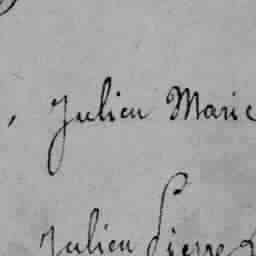 , Julien Marie
Julien Pierre